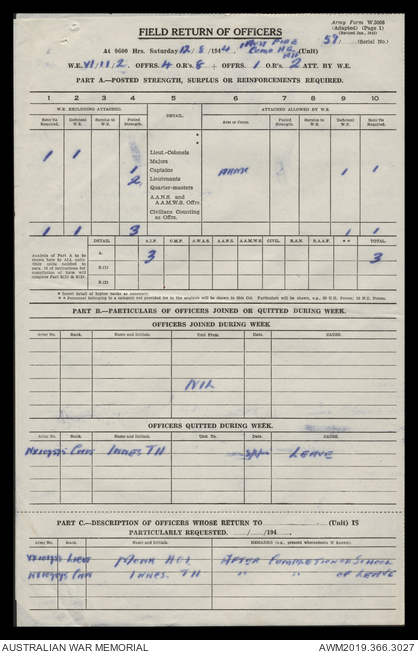 Army Form W.3008
(Adapted) (Page 1)
FIELD RETURN OF OFFICERS
At 0600 Hrs. Saturday 12/8/1944. (Unit)
57/ (Serial No.)
W.E. VI/11/2. OFFRS. 4 O.R's. 8 + OFFRS. 1 O.R's. 2 ATT. BY W.E.
PART A.—POSTED STRENGTH, SURPLUS OR REINFORCEMENTS REQUIRED.
1 2 3 4 5 6 7 8 9 10
W.E. EXCLUDING ATTACHED. DETAIL. ATTACHED ALLOWED BY W.E.
Rein'fts Required. Deficient W.E. Surplus to W.E. Posted Strength. Arm or Corps. Posted Strength. Surplus to W.E. Deficient W.E. Rein'fts Required.
1 1 Lieut.-Colonels
Majors
1 Captains 1 1
2 Lieutenants
Quarter-masters
A.A.N.S. and A.A.M.W.S. Offrs.
Civilians Counting as Offrs.
1 1 3 1 1
DETAIL A.I.F. C.M.F. A.W.A.S. A.A.N.S. A.A.M.W.S. CIVIL. R.A.N. R.A.A.F. * * TOTAL.
Analysis of Part A to be shown here by ALL units. Only units needed to
A. 3 3
B.(1)
B.(2)
* Insert detail of higher ranks as necessary.
* * Personnel belonging to a category not provided for in the analysis will be shown in this Col. Particulars will be shown, e.g., 20 U.K. Forces; 10 N.Z. Forces.
PART B.—PARTICULARS OF OFFICERS JOINED OR QUITTED DURING WEEK.
OFFICERS JOINED DURING WEEK
Army No. Rank. Name and Initials. Unit From. Date. CAUSE.
NIL
OFFICERS QUITTED DURING WEEK.
Army No. Rank. Name and Initials. Unit To. Date. CAUSE.
Capt Innes TH LEAVE
PART C.—DESCRIPTION OF OFFICERS WHOSE RETURN TO (Unit) IS
PARTICULARLY REQUESTED. / /194
Army No. Rank. Name and Initials. REMARKS (e.g., present whereabouts if known).
Lieut Monk AFTER COMPLETION OF SCHOOL
Capt Innes. TH " " OF LEAVE
AUSTRALIAN WAR MEMORIAL
AWM2019.366.3027